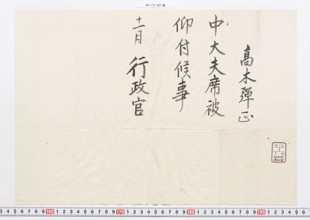 高木弾正
中大夫席被
仰付候事
十一月 行政官